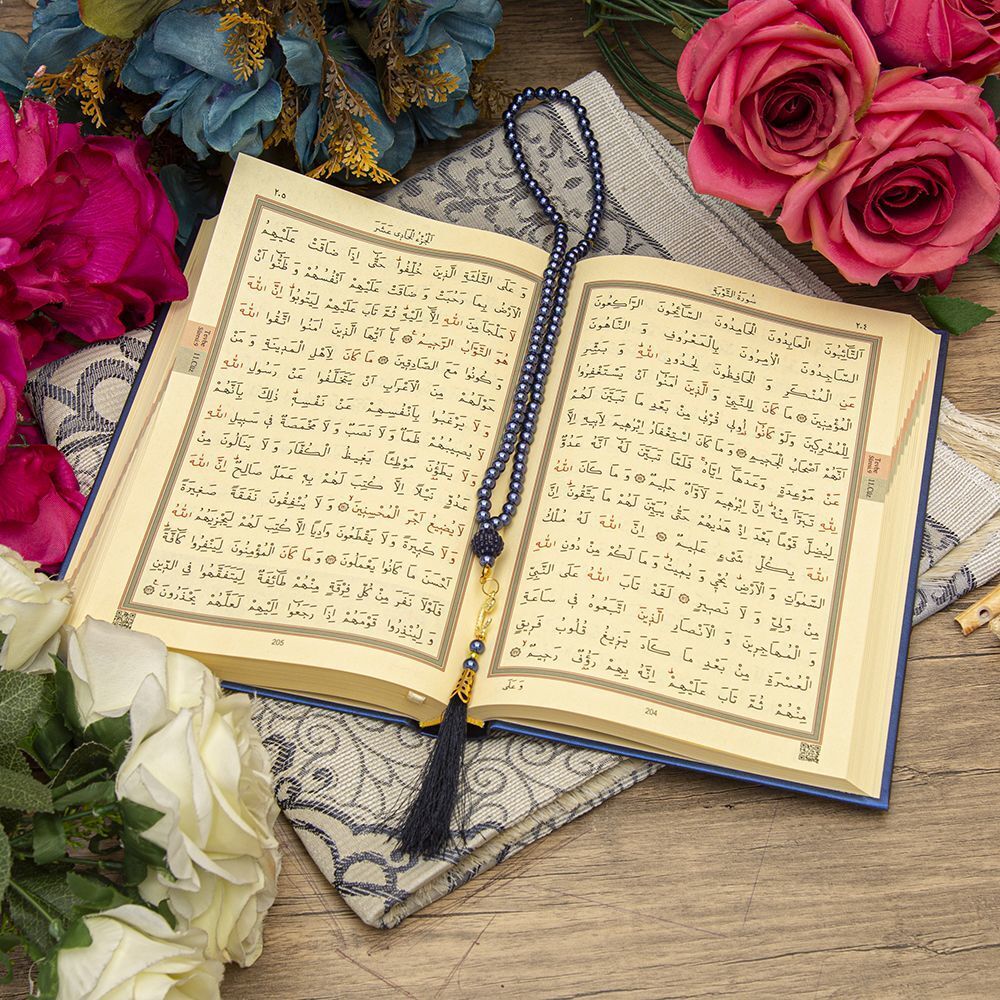 ٢٠٤
سُورَةُ التَّوْبَةِ
اَلتَّٓائِبُونَ الْعَابِدُونَ الْحَامِدُونَ السَّٓائِحُونَ الرَّاكِعُونَ
السَّاجِدُونَ الْاٰمِرُونَ بِالْمَعْرُوفِ وَ النَّاهُونَ
عَنِ الْمُنْكَرِ وَ الْحَافِظُونَ لِحُدُودِ اللّٰهِ وَ بَشِّرِ
الْمُؤْمِنِينَ ۞ مَا كَانَ لِلنَّبِيِّ وَ الَّذِينَ اٰمَنُٓوا اَنْ يَسْتَغْفِرُوا
لِلْمُشْرِكِينَ وَلَوْ كَانُٓوا اُولِي قُرْبٰى مِنْ بَعْدِ مَا تَبَيَّنَ لَهُمْ
اَنَّهُمْ اَصْحَابُ الْجَحِيمِ ۞ وَ مَا كَانَ اسْتِغْفَارُ اِبْرٰهِيمَ لِاَبِيهِ اِلَّا
عَنْ مَوْعِدَةٍ وَعَدَهَٓا اِيَّاهُ فَلَمَّا تَبَيَّنَ لَهُٓ اَنَّهُ عَدُوٌّ
لِلّٰهِ تَبَرَّاَ مِنْهُ اِنَّ اِبْرٰهِيمَ لَاَوَّاهٌ حَلِيمٌ ۞ وَ مَا كَانَ اللّٰهُ
لِيُضِلَّ قَوْمًا بَعْدَ اِذْ هَدٰيهُمْ حَتّٰى يُبَيِّنَ لَهُمْ مَا يَتَّقُونَ اِنَّ
اللّٰهَ بِكُلِّ شَيْءٍ عَلِيمٌ ۞ اِنَّ اللّٰهَ لَهُ مُلْكُ
السَّمٰوَاتِ وَ الْاَرْضِ يُحْيِي وَ يُمِيتُ وَ مَا لَكُمْ مِنْ دُونِ اللّٰهِ
مِنْ وَلِيٍّ وَ لَا نَصِيرٍ ۞ لَقَدْ تَابَ اللّٰهُ عَلَى النَّبِيِّ
وَ الْمُهَاجِرِينَ وَ الْاَنْصَارِ الَّذِينَ اتَّبَعُوهُ فِي سَاعَةِ
الْعُسْرَةِ مِنْ بَعْدِ مَا كَادَ يَزِيغُ قُلُوبُ فَرِيقٍ
مِنْهُمْ ثُمَّ تَابَ عَلَيْهِمْ اِنَّهُ بِهِمْ رَؤُفٌ رَحِيمٌ ۞
وَ عَلَى
204
Tevbe
Sûresi 9
11.Cüz
٢٠٥
اَلْجُزْءُ الْحَادِي عَشَرَ
وَ عَلَى الثَّلٰثَةِ الَّذِينَ خُلِّفُوا حَتّٰٓى اِذَا ضَاقَتْ عَلَيْهِمُ
الْاَرْضُ بِمَا رَحُبَتْ وَ ضَاقَتْ عَلَيْهِمْ اَنْفُسُهُمْ وَ ظَنُّٓوا اَنْ
لَا مَلْجَاَ مِنَ اللّٰهِ اِلَّٓا اِلَيْهِ ثُمَّ تَابَ عَلَيْهِمْ لِيَتُوبُوا اِنَّ اللّٰهَ
هُوَ التَّوَّابُ الرَّحِيمُ ۞ يَٓا اَيُّهَا الَّذِينَ اٰمَنُوا اتَّقُوا اللّٰهَ
وَ كُونُوا مَعَ الصَّادِقِينَ ۞ مَا كَانَ لِاَهْلِ الْمَدِينَةِ وَ مَنْ
حَوْلَهُمْ مِنَ الْاَعْرَابِ اَنْ يَتَخَلَّفُوا عَنْ رَسُولِ اللّٰهِ
وَ لَا يَرْغَبُوا بِاَنْفُسِهِمْ عَنْ نَفْسِهِ ذٰلِكَ بِاَنَّهُمْ
لَا يُصِيبُهُمْ ظَمَاٌ وَ لَا نَصَبٌ وَ لَا مَخْمَصَةٌ فِي سَبِيلِ اللّٰهِ
وَ لَا يَطَؤُنَ مَوْطِئًا يَغِيظُ الْكُفَّارَ وَ لَا يَنَالُونَ مِنْ
عَدُوٍّ نَيْلًا اِلَّا كُتِبَ لَهُمْ بِهِ عَمَلٌ صَالِحٌ اِنَّ اللّٰهَ
لَا يُضِيعُ اَجْرَ الْمُحْسِنِينَ ۞ وَ لَا يُنْفِقُونَ نَفَقَةً صَغِيرَةً
وَ لَا كَبِيرَةً وَ لَا يَقْطَعُونَ وَادِيًا اِلَّا كُتِبَ لَهُمْ لِيَجْزِيَهُمُ اللّٰهُ
اَحْسَنَ مَا كَانُوا يَعْمَلُونَ ۞ وَ مَا كَانَ الْمُؤْمِنُونَ لِيَنْفِرُوا كَٓافَّةً
فَلَوْلَا نَفَرَ مِنْ كُلِّ فِرْقَةٍ مِنْهُمْ طَٓائِفَةٌ لِيَتَفَقَّهُوا فِي الدِّينِ
وَ لِيُنْذِرُوا قَوْمَهُمْ اِذَا رَجَعُٓوا اِلَيْهِمْ لَعَلَّهُمْ يَحْذَرُونَ ۞
205
Tevbe
Sûresi 9
11.Cüz